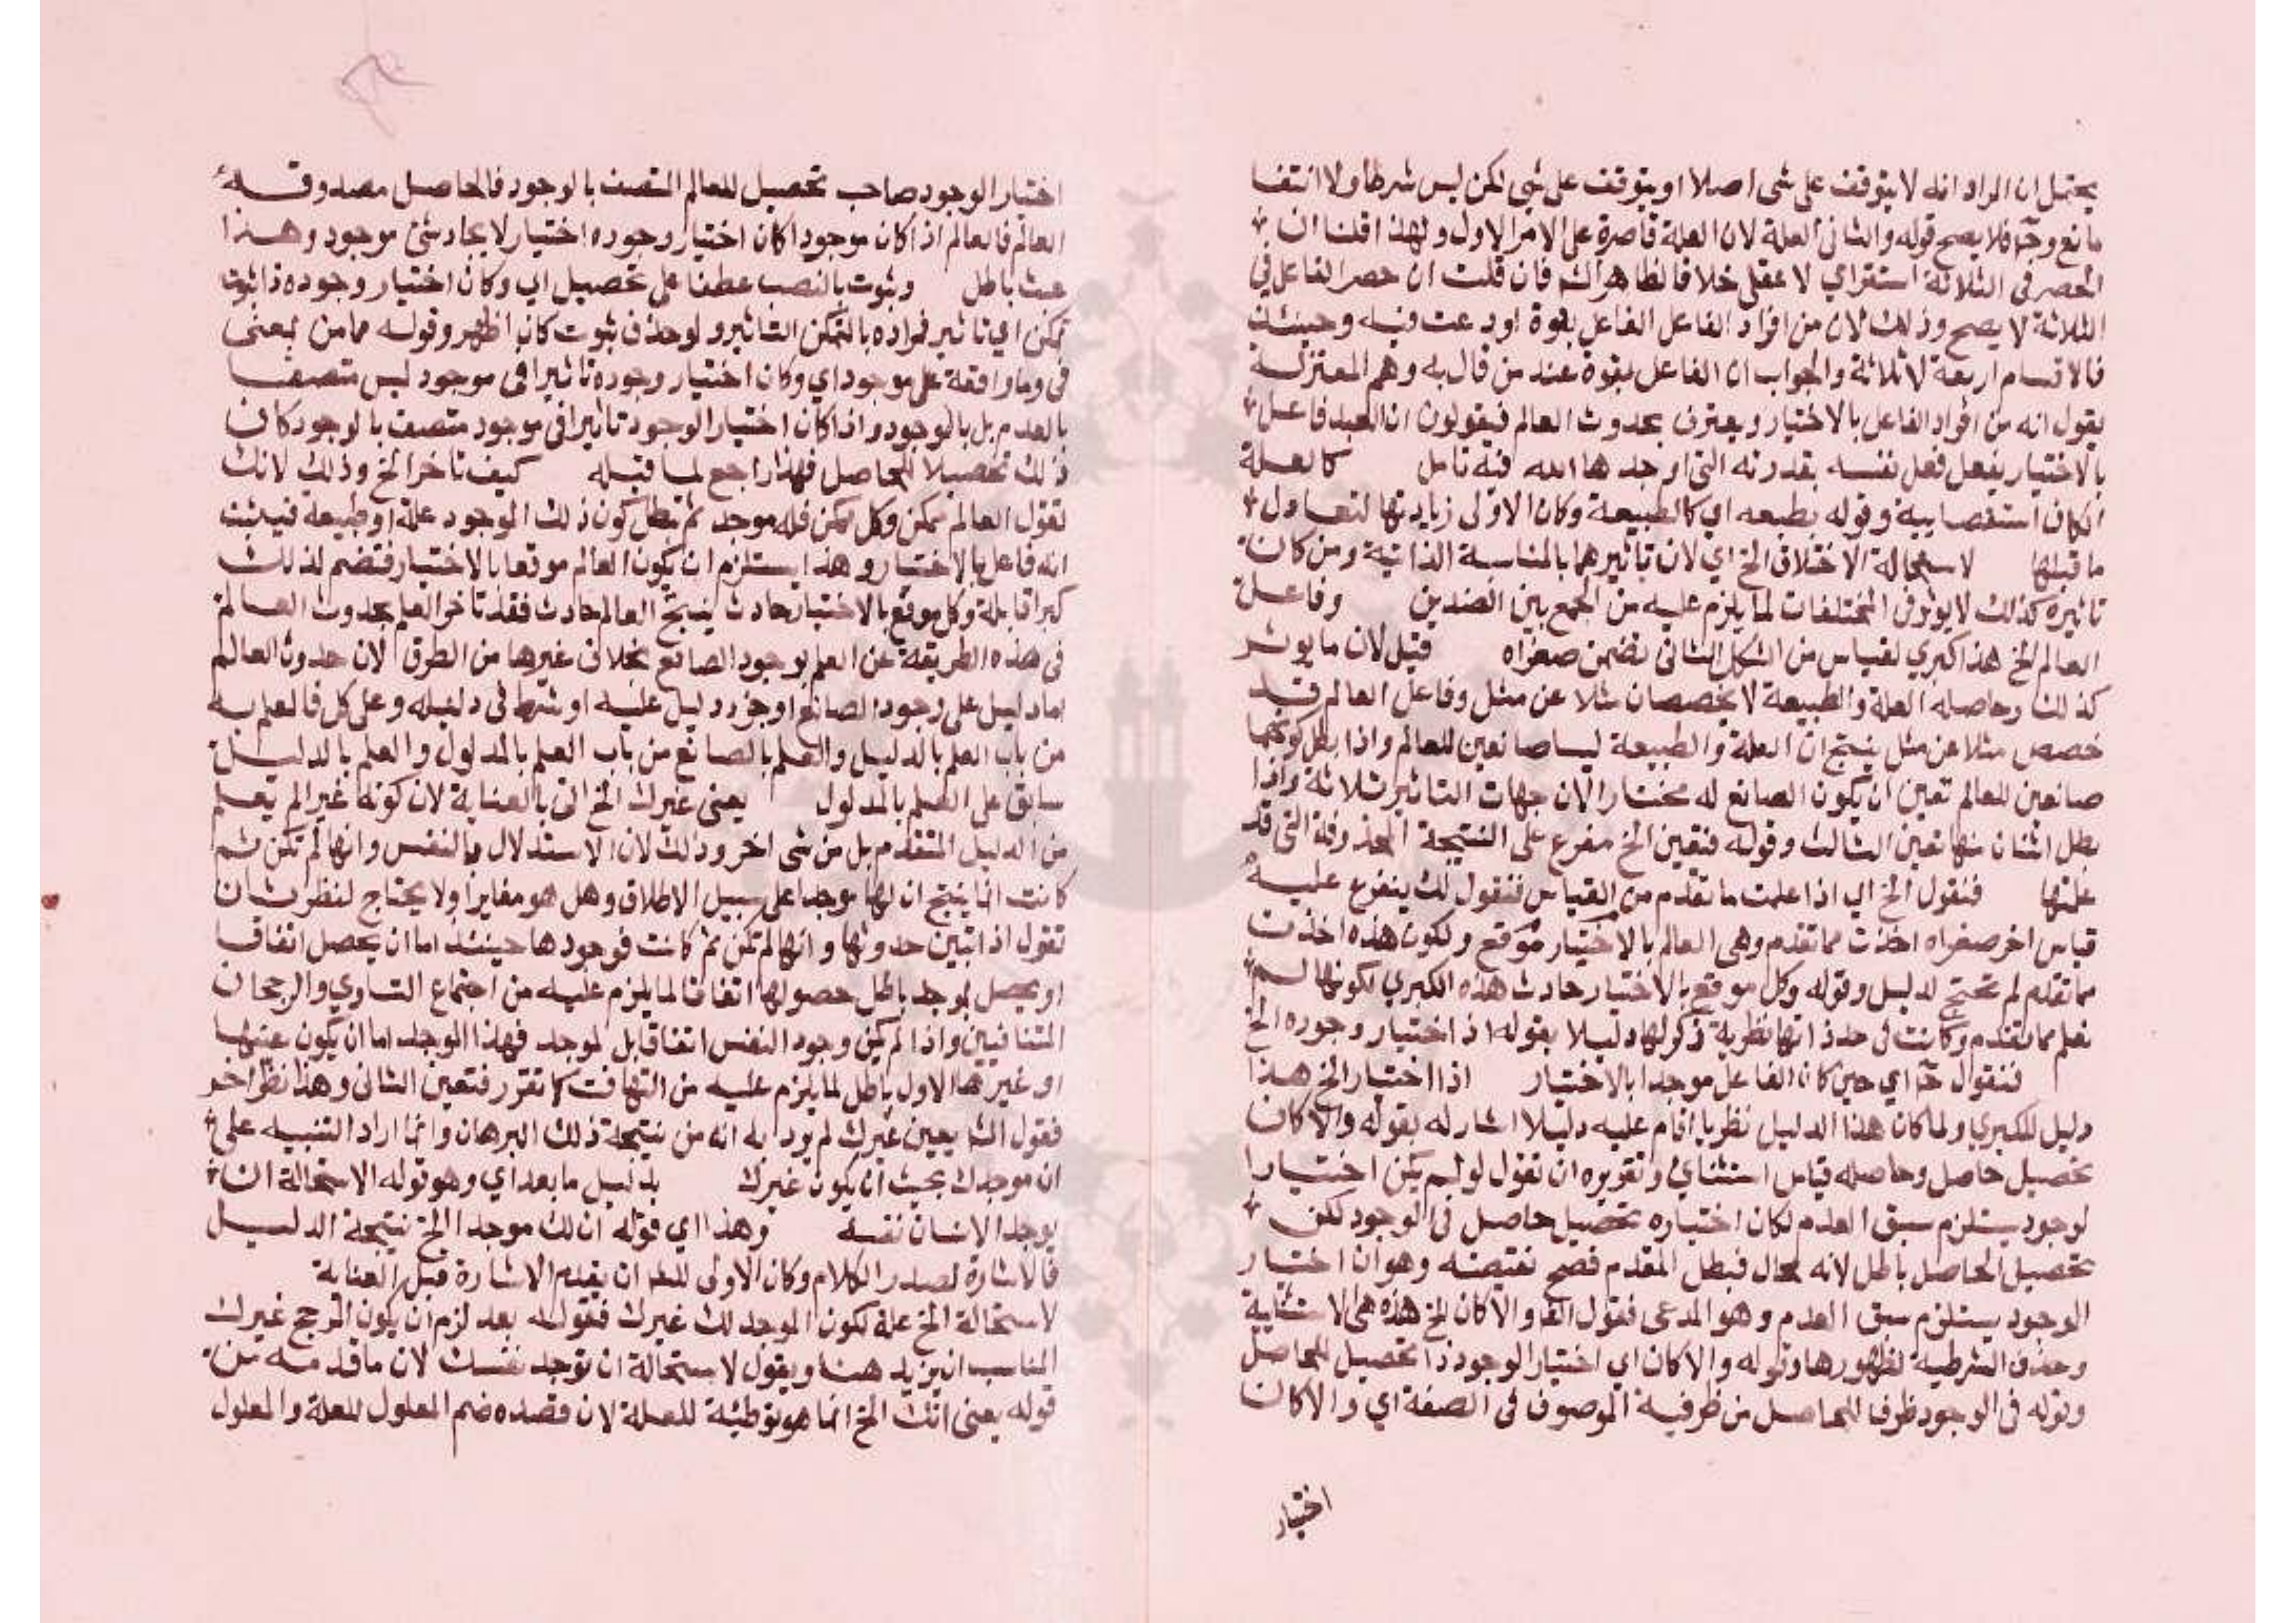 يحتمل ان المراد انه لا يتوقف على شى اصلا او يتوقف على شى لكن ليس شرطا ولا انتفا
مانع وح فلا يصح قوله والثانى العلة لان العلة قاصرة على الامر الاول ولهذا قلنا ان
الحصر فى الثلاثة استقراي لا عقلى خلافا لظاهر الش فان قلت ان حصر الفاعل في
الثلاثة لا يصح وذلك لان من افراد الفاعل الفاعل بقوة اودعت فيه وحينئذ
فالاقسام اربعة لا ثلاثة والجواب ان الفاعل بقوة عند من قال به وهم المعتزلة
يقول انه من افراد الفاعل بالاختيار ويعترف بحدوث العالم فيقولون ان العبد فاعل
بالاختيار يفعل فعل نفسه بقدرته التى اوجدها الله فيه تامل كالعلة
الكاف استقصايية وقوله بطبعه اي كالطبيعة وكان الاولى زيادتها لتعادل
ما قبلها لاستحالة الاختلاف الخ اي لان تاثيرهما بالمناسبة الذاتية ومن كان
تاثيره كذلك لا يوثر فى المختلفات لما يلزم عليه من الجمع بين الضدين وفاعل
العالم الخ هذا كبري لقياس من الشكل الثانى تضمن صغراه قبل لان ما يوثر
كذلك وحاصله العلة والطبيعة لا يخصصان مثلا عن مثل وفاعل العالم قد
خصص مثلا عن مثل ينتج ان العلة والطبيعة ليسا صانعين للعالم واذا بطل كونهما
صانعين للعالم تعين ان يكون الصانع له مختارا لان جهات التاثير ثلاثة واذا
بطل اثنان منها تعين الثالث وقوله فتعين الخ مفرع على النتيجة المحذوفة التى قد
علمتها فنقول الخ اي اذا علمت ما تقدم من القياس فنقول لك يتفرع عليه
قياس اخر صغراه اخذت مما تقدم وهى العالم بالاختيار موقع ولكون هذه اخذت
مما تقدم لم تحتج لدليل وقوله وكل موقع بالاختيار حادث هذه الكبري لكونها لم
تعلم مما تقدم وكانت فى حد ذاتها نظرية ذكر لها دليلا بقوله اذ اختيار وجوده الخ
فنقول ح اي حين كان الفاعل موجدا بالاختيار اذ اختيار الخ هذا
دليل للكبري ولما كان هذا الدليل نظريا اقام عليه دليلا اشار له بقوله والا كان
تحصيل حاصل وحاصله قياس استثناي وتقريره ان تقول لو لم يكن اختيارا
لوجود يستلزم سبق العدم لكان اختياره تحصيل حاصل فى الوجود لكن
تحصيل الحاصل باطل لانه محال فبطل المقدم فصح نقيضه وهو ان اختيار
الوجود يستلزم سبق العدم وهو المدعى فقول الش والا كان الخ هذه هى الاستثنايية
وحذف الشرطية لظهورها وقوله والا كان اي اختيار الوجود ذا تحصيل للحاصل
وقوله فى الوجود ظرفا للحاصل من ظرفية الموصوف فى الصفة اي والا كان
اختيار
اختيار الوجود صاحب تحصيل للعالم المتصف بالوجود فالحاصل مصدوقه
العالم فالعالم اذا كان موجودا كان اختيار وجوده اختيار لايجاد شئ موجود وهذا
عبث باطل وثبوت بالنصب عطفا على تحصيل اي وكان اختيار وجوده ذا ثبوت
تمكن اي تاثير فمراده بالتمكن التاثير ولو حذف ثبوت كان اظهر وقوله مما من بمعنى
فى وما واقعة على موجود اي وكان اختيار وجوده تاثيرا فى موجود ليس متصفا
بالعدم بل بالوجود واذا كان اختيار الوجود تاثيرا فى موجود متصف بالوجود كان
ذلك تحصيلا للحاصل فهذا راجع لما قبله كيف تاخر الخ وذلك لانك
تقول العالم ممكن وكل ممكن فله موجد ثم يبطل كون ذلك الموجود علة او طبيعة فيثبت
انه فاعل بالاختيار وهذا يستلزم ان يكون العالم موقعا بالاختيار فتضم لذلك
كبرا قابلة وكل موقع بالاختيار حادث ينتج العالم حادث فقد تاخر العلم بحدوث العالم
فى هذه الطريقة عن العلم بوجود الصانع بخلاف غيرها من الطرق لان حدوث العالم
اما دليل على وجود الصانع او جزو دليل عليه او شرط فى دليله وعلى كل فالعلم به
من باب العلم بالدليل والعلم بالصانع من باب العلم بالمدلول والعلم بالدليل
سابق على العلم بالمدلول يعنى غيرك الخ اتى بالعناية لان كونه غيرا لم يعلم
من الدليل المتقدم بل من شى اخر وذلك لان الاستدلال بالنفس وانها لم تكن ثم
كانت انما ينتج ان لها موجدا على سبيل الاطلاق وهل هو مغايرا ولا يحتاج لنظر ثان
تقول اذا تبين حدوثها وانها لم تكن ثم كانت فوجودها حينئذ اما ان يحصل اتفاقا
او يحصل بموجد باطل حصولها اتفاقا لما يلزم عليه من اجتماع التساوي والرجحان
المتنافيين واذا لم يكن وجود النفس اتفاقا بل لموجد فهذا الموجد اما ان يكون عينها
او غيرها الاول باطل لما يلزم عليه من التهافت كما تقرر فتعين الثانى وهذا نظر اخر
فقول الش يعنى غيرك لم يود به انه من نتيجة ذلك البرهان وانما اراد التنبيه على
ان موجدك بحيث ان يكون غيرك بدليل ما بعد اي وهو قوله الاستحالة ان
يوجد الانسان نفسه وهذا اي قوله ان لك موجدا الخ نتيجة الدليل
فالاشارة لصدر الكلام وكان الاولى للش ان يقدم الاشارة قبل العناية
لاستحالة الخ علة لكون الموجد لك غيرك فقوله بعد لزم ان يكون المرجح غيرك
المناسب ان يزيد هنا ويقول لاستحالة ان توجد نفسك لان ما قدمه من
قوله يعنى انك الخ انما هو توطئة للعلة لان قصده ضم المعلول للعلة والمعلول